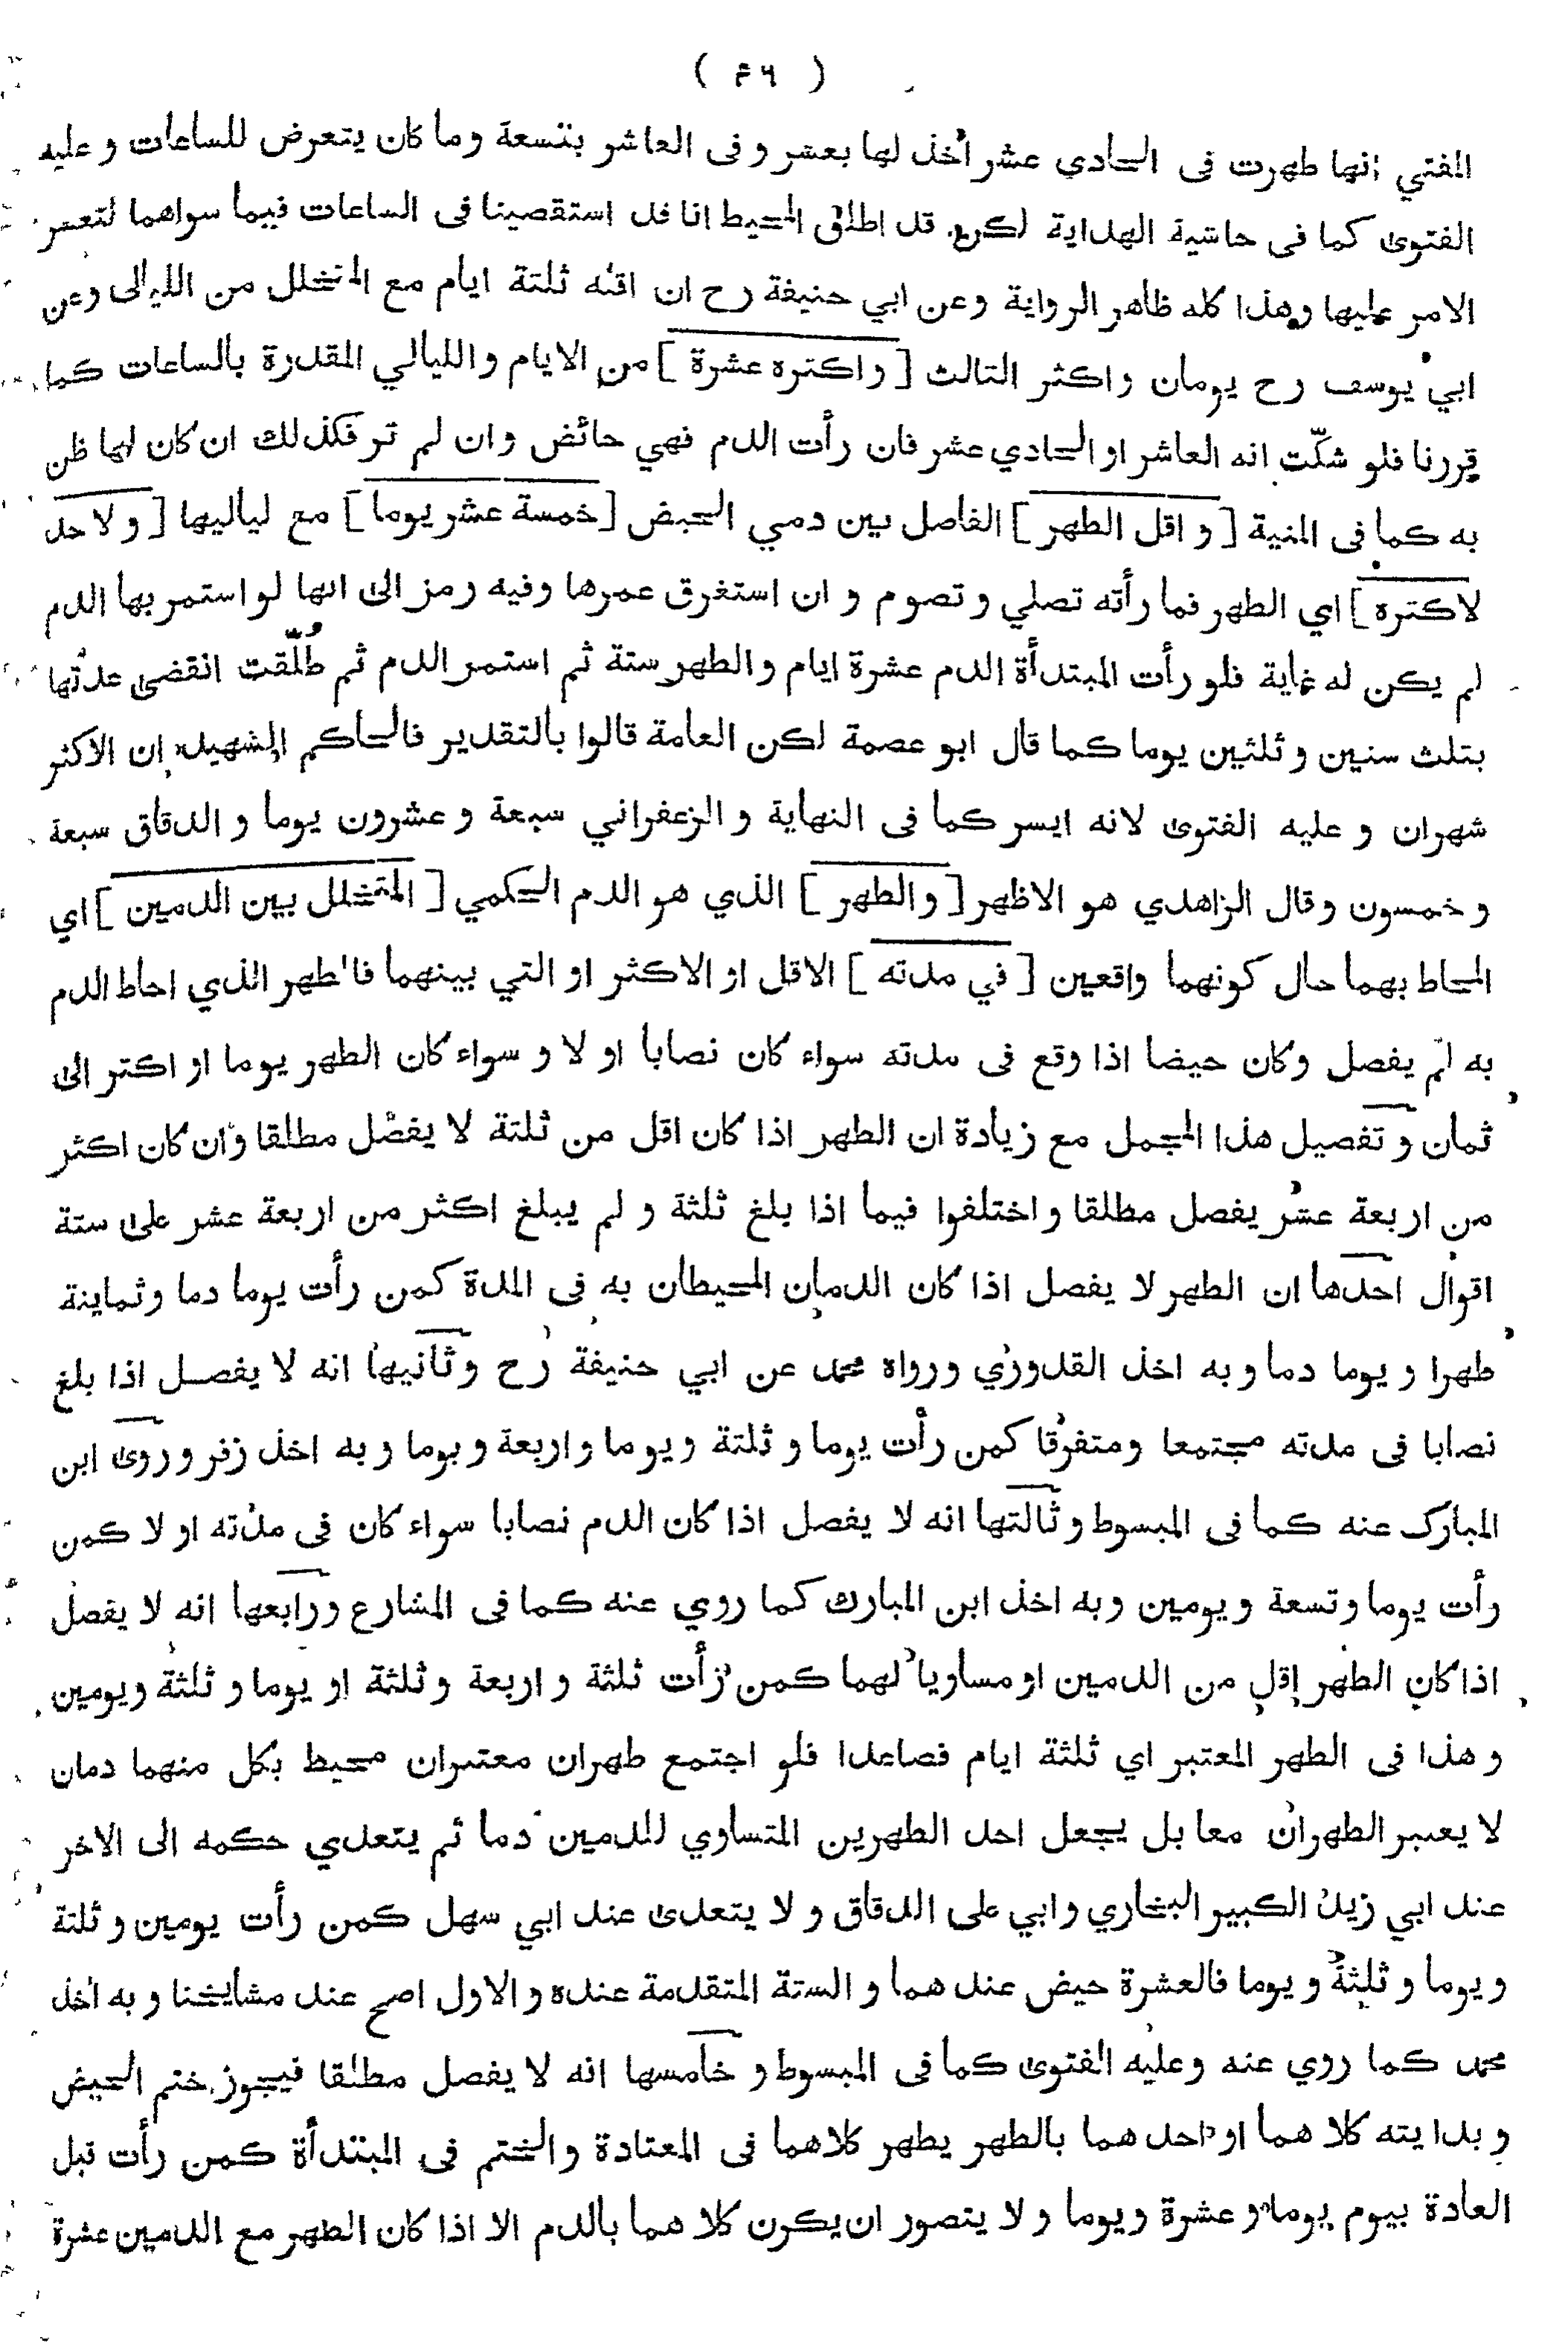 ( ٤٦ )
المفتي انها طهرت فى الحادي عشر أخذ لها بعشر و فى العاشر بتسعة وما كان يتعرض للساعات و عليه
الفتوى كما فى حاشية الهداية لكن قد اطلق المحيط انا قد استقصينا فى الساعات فيما سواهما لتعسر
الامر عليها وهذا كله ظاهر الرواية وعن ابي حنيفة رح ان اقله ثلثة ايام مع المتخلل من الليالى وعن
ابي يوسف رح يومان واكثر الثالث [ واكثره عشرة ] من الايام والليالي المقدرة بالساعات كما
قررنا فلو شكّت انه العاشر او الحادي عشر فان رأت الدم فهي حائض وان لم تر فكذلك ان كان لها ظن
به كما فى المنية [ و اقل الطهر ] الفاصل بين دمي الحيض [ خمسة عشر يوما ] مع لياليها [ و لا حد
لاكثره ] اي الطهر فما رأته تصلي و تصوم و ان استغرق عمرها وفيه رمز الى انها لو استمر بها الدم
لم يكن له غاية فلو رأت المبتدأة الدم عشرة ايام والطهر ستة ثم استمر الدم ثم طُلّقت انقضى عدتها
بثلث سنين و ثلثين يوما كما قال ابو عصمة لكن العامة قالوا بالتقدير فالحاكم الشهيد ان الاكثر
شهران و عليه الفتوى لانه ايسر كما فى النهاية و الزعفراني سبعة و عشرون يوما و الدقاق سبعة
و خمسون وقال الزاهدي هو الاظهر [ والطهر ] الذي هو الدم الحكمي [ المتخلل بين الدمين ] اي
المحاط بهما حال كونهما واقعين [ في مدته ] الاقل او الاكثر او التي بينهما فالطهر الذي احاط الدم
به لم يفصل وكان حيضا اذا وقع فى مدته سواء كان نصابا او لا و سواء كان الطهر يوما او اكثر الى
ثمان و تفصيل هذا المجمل مع زيادة ان الطهر اذا كان اقل من ثلثة لا يفصل مطلقا وان كان اكثر
من اربعة عشر يفصل مطلقا و اختلفوا فيما اذا بلغ ثلثة و لم يبلغ اكثر من اربعة عشر على ستة
اقوال احدها ان الطهر لا يفصل اذا كان الدمان المحيطان به فى المدة كمن رأت يوما دما وثمانية
طهرا و يوما دما و به اخذ القدوري ورواه محمد عن ابي حنيفة رح وثانيها انه لا يفصل اذا بلغ
نصابا فى مدته مجتمعا ومتفرقا كمن رأت يوما و ثلثة ويوما واربعة و يوما و به اخذ زفر وروى ابن
المبارك عنه كما فى المبسوط و ثالثها انه لا يفصل اذا كان الدم نصابا سواء كان فى مدته او لا كمن
رأت يوما وتسعة ويومين وبه اخذ ابن المبارك كما روي عنه كما فى المشارع ورابعها انه لا يفصل
اذا كان الطهر اقل من الدمين او مساويا لهما كمن رأت ثلثة و اربعة و ثلثة او يوما و ثلثة ويومين
و هذا فى الطهر المعتبر اي ثلثة ايام فصاعدا فلو اجتمع طهران معتبران محيط بكل منهما دمان
لا يعتبر الطهران معا بل يجعل احد الطهرين المتساوي للدمين دما ثم يتعدي حكمه الى الاخر
عند ابي زيد الكبير البخاري وابي على الدقاق و لا يتعدى عند ابي سهل كمن رأت يومين و ثلثة
و يوما و ثلثة و يوما فالعشرة حيض عند هما و الستة المتقدمة عنده و الاول اصح عند مشايخنا و به اخذ
محمد كما روي عنه وعليه الفتوى كما فى المبسوط و خامسها انه لا يفصل مطلقا فيجوز ختم الحيض
و بدايته كلا هما او احد هما بالطهر يطهر كلاهما فى المعتادة والختم فى المبتدأة كمن رأت قبل
العادة بيوم يوما و عشرة ويوما و لا يتصور ان يكون كلا هما بالدم الا اذا كان الطهر مع الدمين عشرة